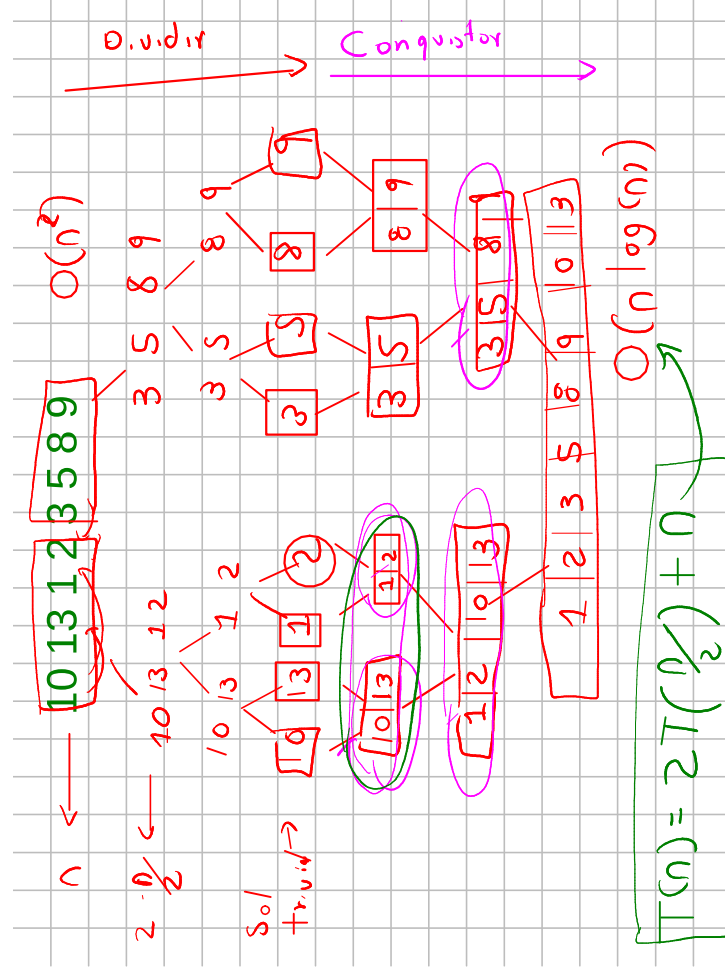 Dividir
Conquistar
n
10 13 1 2 3 5 8 9
O(n²)
2 · n/2
10 13 1 2
3 5 8 9
10 13
1 2
3 5
8 9
Sol
trivial
10 13 1 2 3 5 8 9
10 13
1 2
3 5
8 9
1 2 10 13
3 5 8 9
1 2 3 5 8 9 10 13
O(n log(n))
T(n) = 2T(n/2) + n